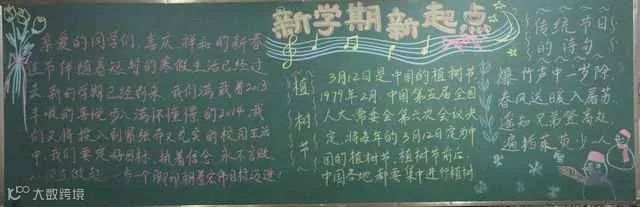 新学期新起点
亲爱的同学们,喜庆、祥和的新春
佳节伴随着短暂的寒假生活已经过
去,新的学期已经到来。我们满载着2013
丰收的喜悦步入满怀憧憬的2014,我
们又将投入到紧张而又充实的校园生活
中,我们要定好目标,执着信念,永不言败
植树节
3月12日是中国的植树节
1979年2月,中国第五届全国
人大常委会第六次会议决
定,将每年的3月12日定为中
国的植树节。植树节前后,
中国各地都要集中进行植树
传统节日
的诗句
爆竹声中一岁除
春风送暖入屠苏
遥知兄弟登高处,
遍插茱萸少一人
大数跨境